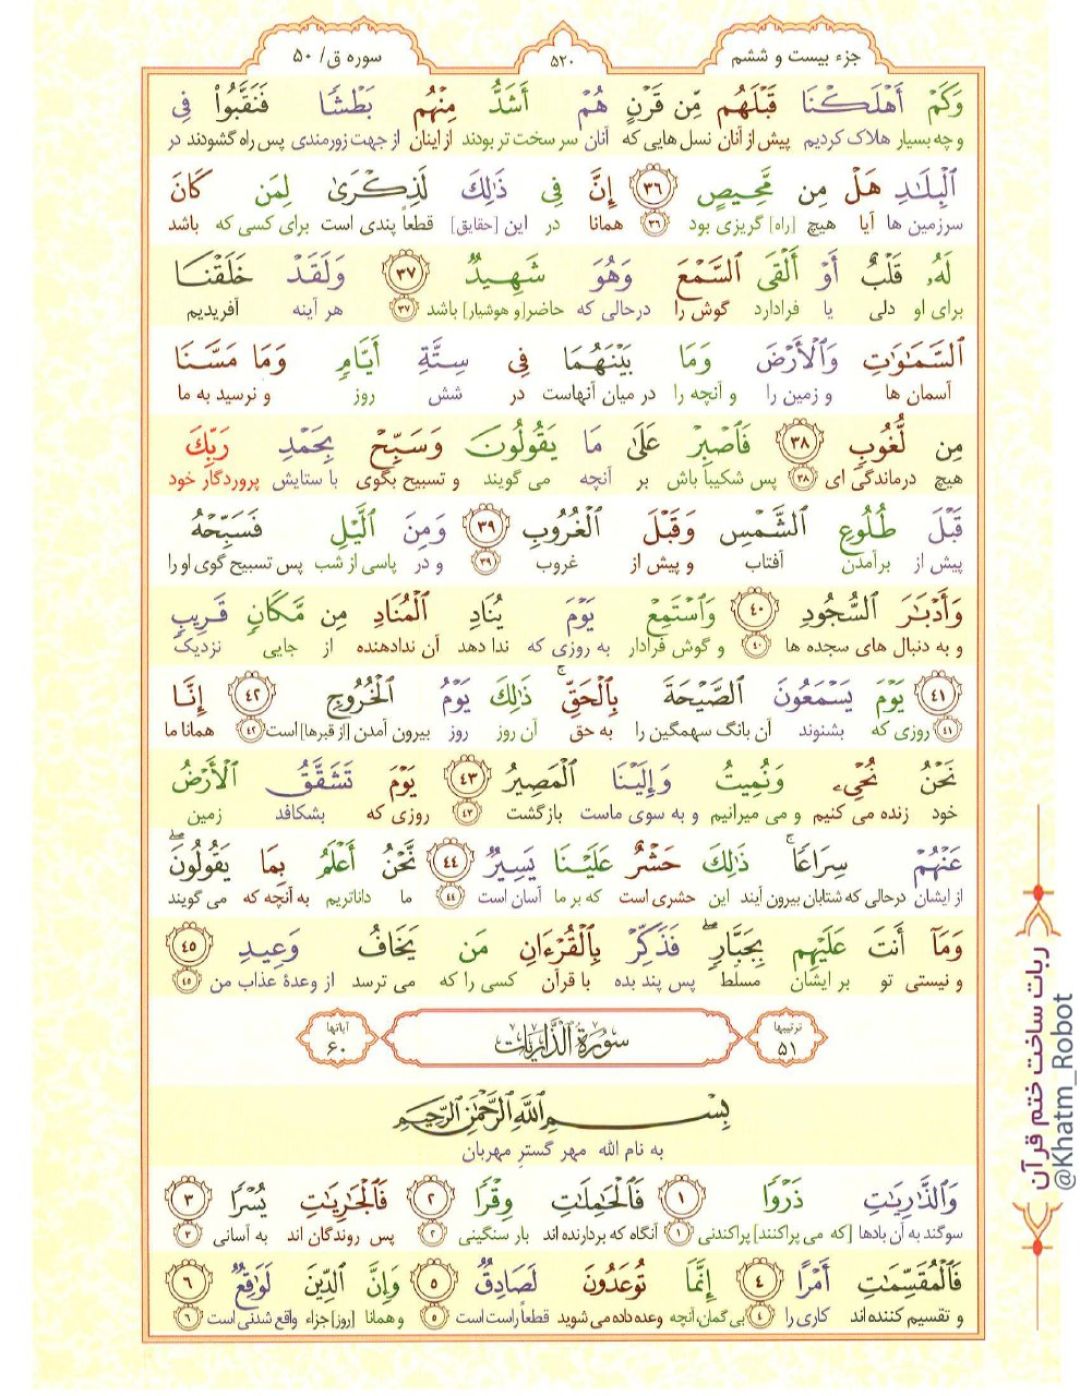 جزء بیست و ششم
۵۲۰
سوره ق/ ۵۰
وَكَمْ أَهْلَكْنَا قَبْلَهُم مِّن قَرْنٍ هُمْ أَشَدُّ مِنْهُم بَطْشًا فَنَقَّبُوا۟ فِي
و چه بسیار هلاک کردیم پیش از آنان نسل هایی که آنان سر سخت تر بودند از اینان از جهت زورمندی پس راه گشودند در
ٱلْبِلَـٰدِ هَلْ مِن مَّحِيصٍ ٣٦ إِنَّ فِي ذَٰلِكَ لَذِكْرَىٰ لِمَن كَانَ
سرزمین ها آیا هیچ [راه] گریزی بود ٣٦ همانا در این [حقایق] قطعاً پندی است برای کسی که باشد
لَهُۥ قَلْبٌ أَوْ أَلْقَى ٱلسَّمْعَ وَهُوَ شَهِيدٌ ٣٧ وَلَقَدْ خَلَقْنَا
برای او دلی یا فرادارد گوش را درحالی که حاضر[و هوشیار] باشد ٣٧ هر آینه آفریدیم
ٱلسَّمَـٰوَٰتِ وَٱلْأَرْضَ وَمَا بَيْنَهُمَا فِي سِتَّةِ أَيَّامٍ وَمَا مَسَّنَا
آسمان ها و زمین را و آنچه را در میان آنهاست در شش روز و نرسید به ما
مِن لُّغُوبٍ ٣٨ فَٱصْبِرْ عَلَىٰ مَا يَقُولُونَ وَسَبِّحْ بِحَمْدِ رَبِّكَ
هیچ درماندگی ای ٣٨ پس شکیبا باش بر آنچه می گویند و تسبیح بگوی با ستایش پروردگار خود
قَبْلَ طُلُوعِ ٱلشَّمْسِ وَقَبْلَ ٱلْغُرُوبِ ٣٩ وَمِنَ ٱلَّيْلِ فَسَبِّحْهُ
پیش از برآمدن آفتاب و پیش از غروب ٣٩ و در پاسی از شب پس تسبیح گوی او را
وَأَدْبَـٰرَ ٱلسُّجُودِ ٤٠ وَٱسْتَمِعْ يَوْمَ يُنَادِ ٱلْمُنَادِ مِن مَّكَانٍ قَرِيبٍ
و به دنبال های سجده ها ٤٠ و گوش فرادار به روزی که ندا دهد آن ندادهنده از جایی نزدیک
٤١ يَوْمَ يَسْمَعُونَ ٱلصَّيْحَةَ بِٱلْحَقِّ ۚ ذَٰلِكَ يَوْمُ ٱلْخُرُوجِ ٤٢ إِنَّا
٤١ روزی که بشنوند آن بانگ سهمگین را به حق آن روز روز بیرون آمدن [از قبرها] است ٤٢ همانا ما
نَحْنُ نُحْيِۦ وَنُمِيتُ وَإِلَيْنَا ٱلْمَصِيرُ ٤٣ يَوْمَ تَشَقَّقُ ٱلْأَرْضُ
خود زنده می کنیم و می میرانیم و به سوی ماست بازگشت ٤٣ روزی که بشکافد زمین
عَنْهُمْ سِرَاعًا ۚ ذَٰلِكَ حَشْرٌ عَلَيْنَا يَسِيرٌ ٤٤ نَّحْنُ أَعْلَمُ بِمَا يَقُولُونَ ۖ
از ایشان درحالی که شتابان بیرون آیند این حشری است که بر ما آسان است ٤٤ ما داناتریم به آنچه که می گویند
وَمَآ أَنتَ عَلَيْهِم بِجَبَّارٍ ۖ فَذَكِّرْ بِٱلْقُرْءَانِ مَن يَخَافُ وَعِيدِ ٤٥
و نیستی تو بر ایشان مسلط پس پند بده با قرآن کسی را که می ترسد از وعدهٔ عذاب من ٤٥
ترتیبها ۵۱
سُورَةُ ٱلذَّارِيَات
آیاتها ۶۰
بِسْمِ ٱللَّهِ ٱلرَّحْمَـٰنِ ٱلرَّحِيمِ
به نام الله مهر گستر مهربان
وَٱلذَّٰرِيَـٰتِ ذَرْوًا ١ فَٱلْحَـٰمِلَـٰتِ وِقْرًا ٢ فَٱلْجَـٰرِيَـٰتِ يُسْرًا ٣
سوگند به آن بادها [که می پراکنند] پراکندنی ١ آنگاه که بردارنده اند بار سنگینی ٢ پس روندگان اند به آسانی ٣
فَٱلْمُقَسِّمَـٰتِ أَمْرًا ٤ إِنَّمَا تُوعَدُونَ لَصَادِقٌ ٥ وَإِنَّ ٱلدِّينَ لَوَٰقِعٌ ٦
و تقسیم کننده اند کاری را ٤ بی گمان، آنچه وعده داده می شوید قطعاً راست است ٥ و همانا [روز] جزاء واقع شدنی است ٦
ربات ساخت ختم قرآن
@Khatm_Robot